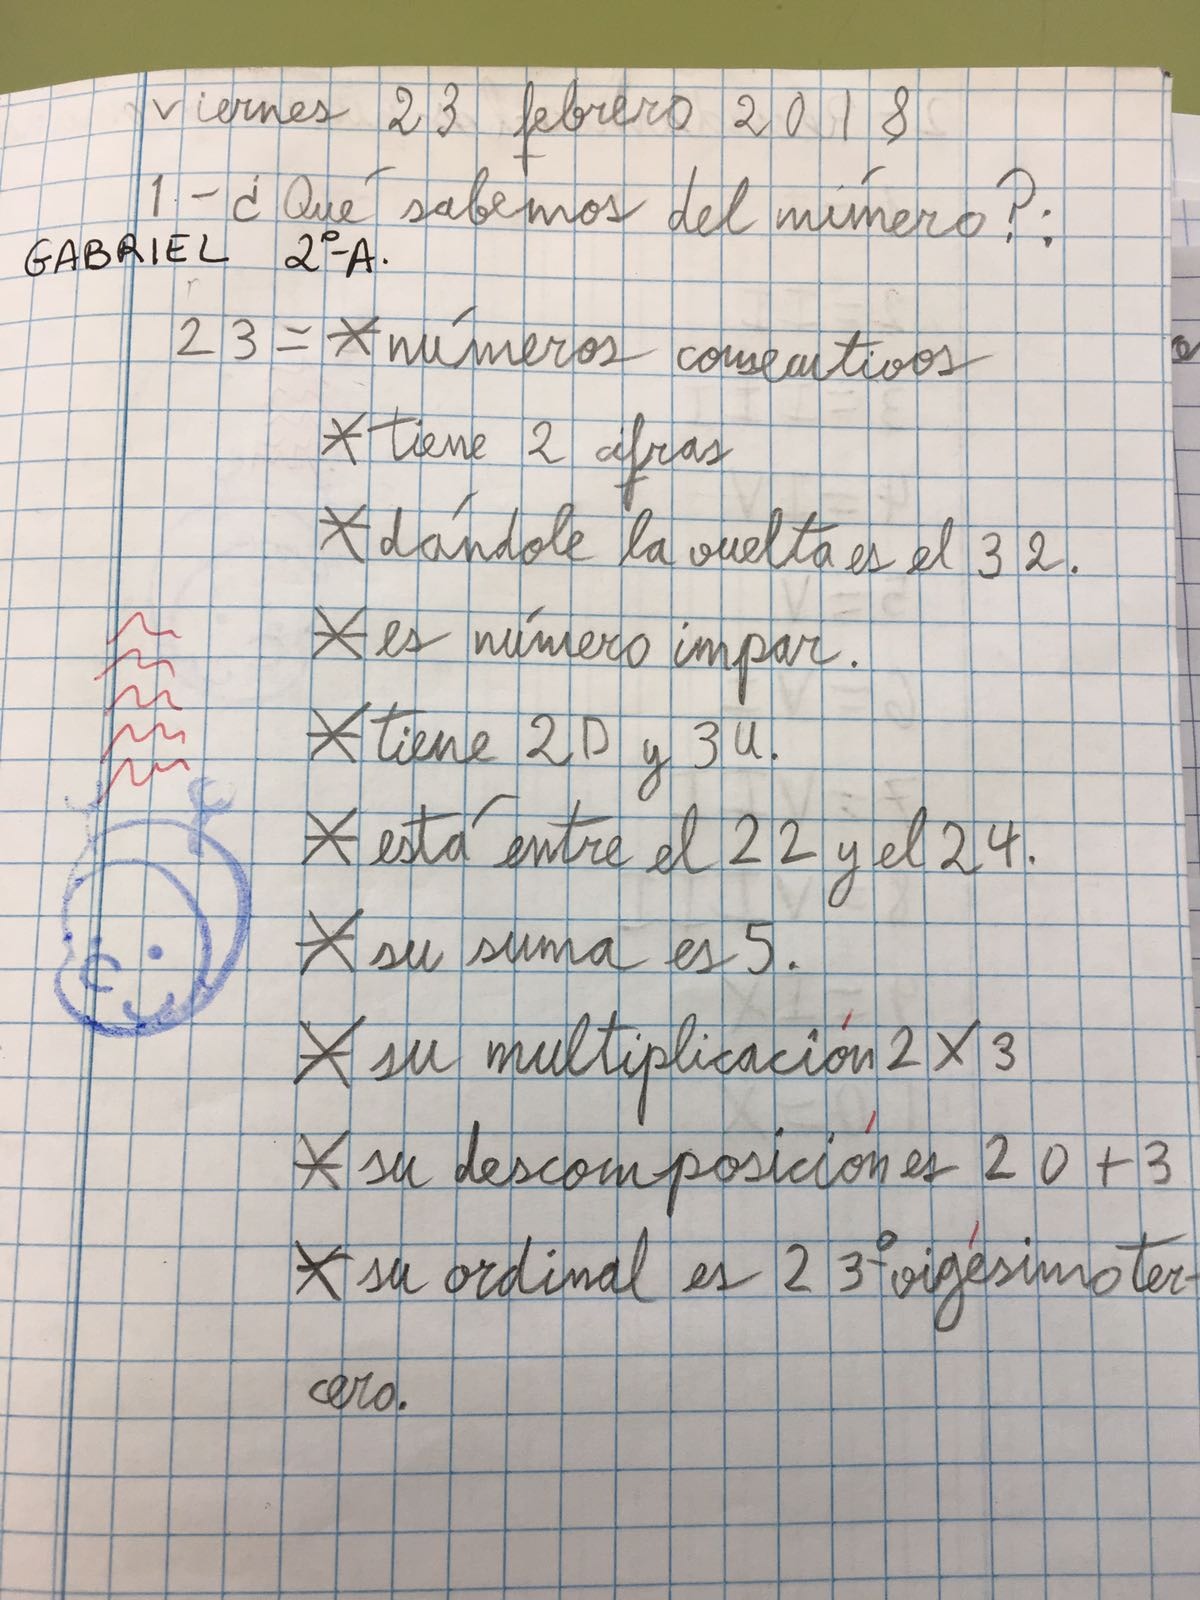 viernes 23 febrero 2018
1-¿Qué sabemos del número?:
GABRIEL 2º-A.
23 = * números consecutivos
* tiene 2 cifras
* dándole la vuelta es el 32.
* es número impar.
* tiene 2D y 3U.
* está entre el 22 y el 24.
* su suma es 5.
* su multiplicación 2 X 3
* su descomposición es 20+3
* su ordinal es 23º vigésimoter-
cero.